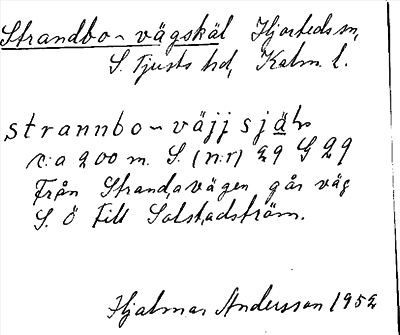 Strandbo-vägskäl Hjorteds sn,
S. Tjusts hd, Kalm. l.
strannbo-väjjsjäl
c:a 200 m. S. (nr) 29 G 29
Från Strandavägen går väg
S. Ö till Solstadström.
Hjalmar Andersson 1952